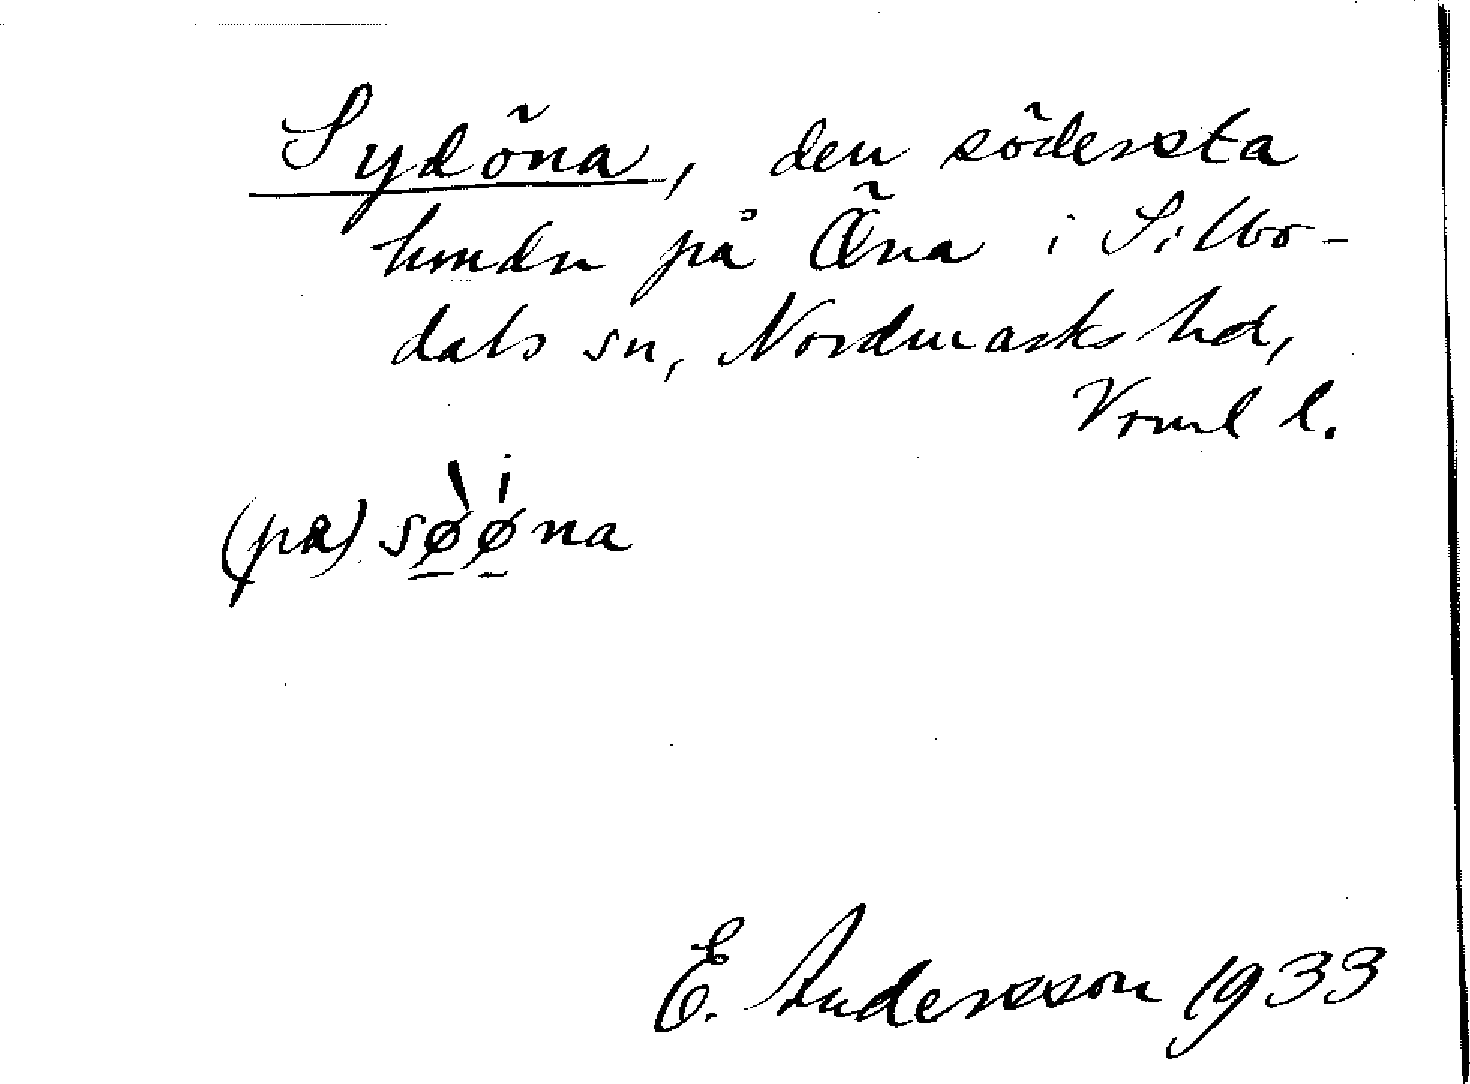 Sydöna, den södersta
hmdn på Öna i Silbo-
dals sn, Nordmarks hd,
Vrml l.
(pa) sø̱̀ǿ̱na
E. Andersson 1933